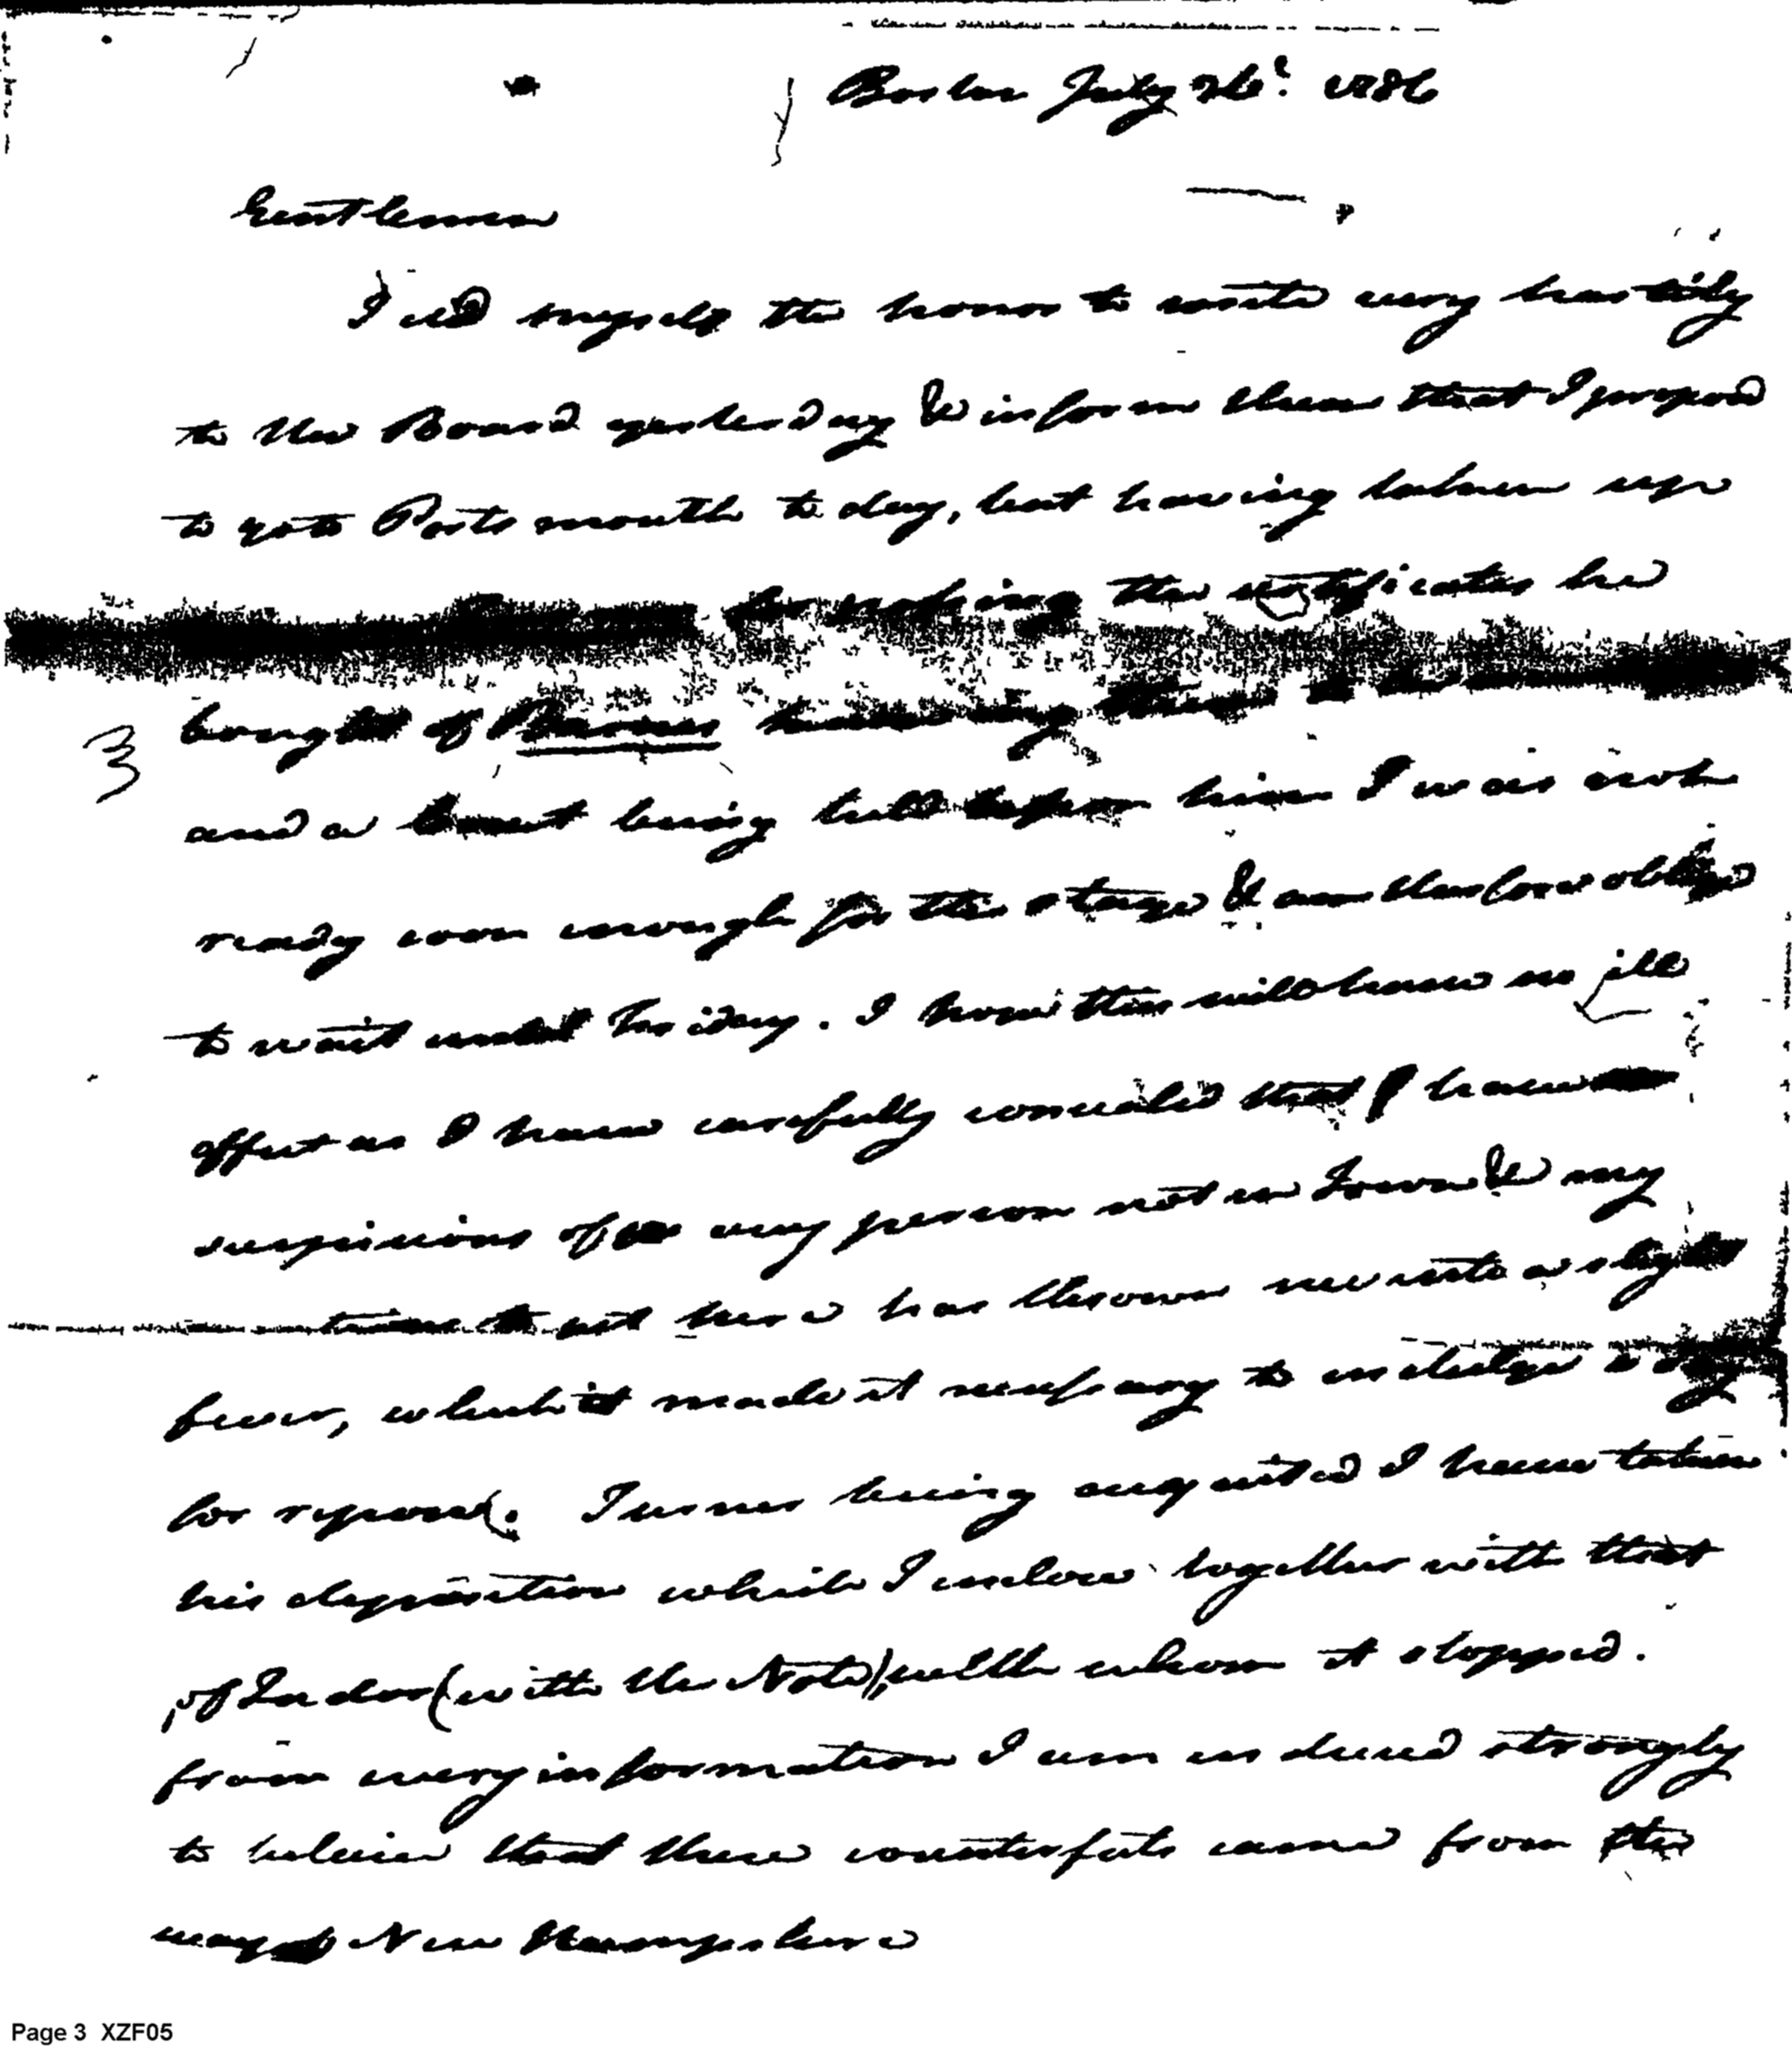 Boston July 26. 1786
Gentlemen
I did myself the honor to write very hastily
to the Board yesterday & inform them that I propose
to go to Portsmouth to day, but having taken up
for passing the certificates he
bought of Barnes knowing them to be
and a Court being held upon him I was not
ready soon enough for the stage & am therefore oblige
to wait until Friday. I hope this will have no ill
effect as I have carefully concealed that I have
suspicions of any person not in Town & my
to get here has thrown me into a slight
fever, which made it necessary to indulge a day
for repose. Turner being acquited I have taken
his deposition which I inclose together with that
of Tudor (with the Note), with whom it stopped.
from every information I am induced strongly
to beleive that these counterfeits came from the
way of New Hampshire
Page 3 XZF05